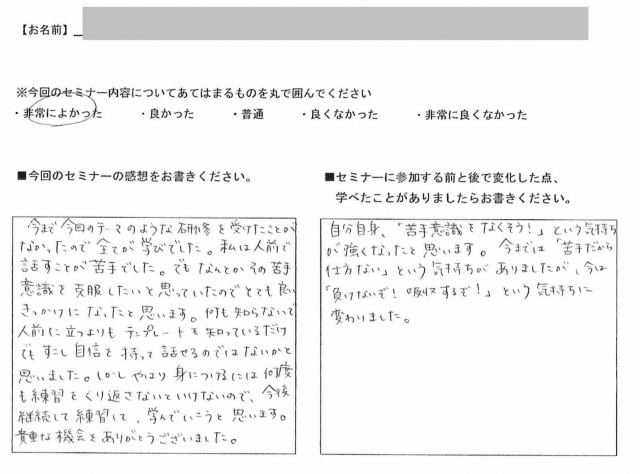 【お名前】
※今回のセミナー内容についてあてはまるものを丸で囲んでください
・非常によかった ・良かった ・普通 ・良くなかった ・非常に良くなかった
■今回のセミナーの感想をお書きください。
今まで今回のテーマのような研修を受けたことが
なかったので全てが学びでした。私は人前で
話すことが苦手でした。でもなんとかその苦手
意識を克服したいと思っていたのでとても良い
きっかけになったと思います。何も知らないで
人前に立つよりもテンプレートを知っているだけ
でもすこし自信を持って話せるのではないかと
思いました。しかしやはり身につけるには何度
も練習をくり返さないといけないので、今後
継続して練習して、学んでいこうと思います。
貴重な機会をありがとうございました。
■セミナーに参加する前と後で変化した点、
学べたことがありましたらお書きください。
自分自身、「苦手意識をなくそう!」という気持ち
が強くなったと思います。今までは「苦手だから
仕方ない」という気持ちがありましたが、今は
「負けないぞ!吸収するぞ!」という気持ちに
変わりました。